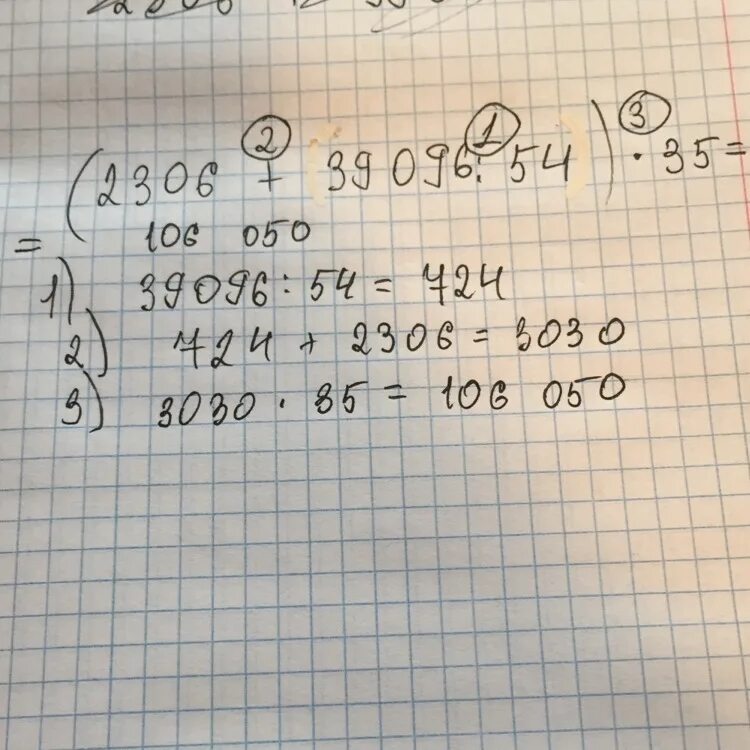 ② ① ③
(2306 + 39096 : 54) · 35 =
= 106 050
1) 39096 : 54 = 724
2) 724 + 2306 = 3030
3) 3030 · 35 = 106 050